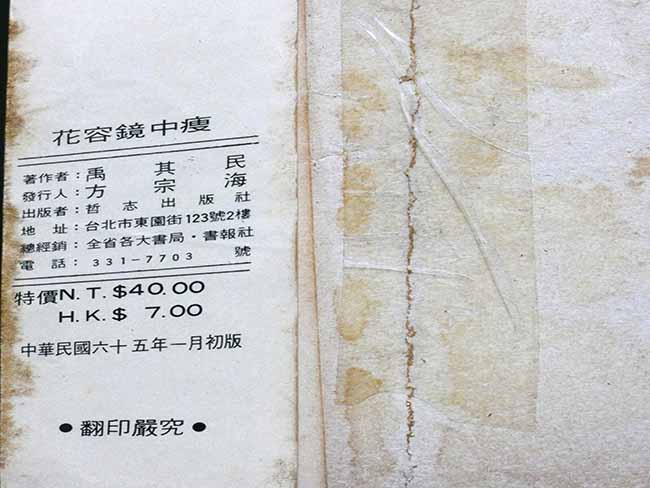 花容鏡中瘦
著作者：禹其民
發行人：方宗海
出版者：哲志出版社
地址：台北市東園街123號2樓
總經銷：全省各大書局·書報社
電話：331-7703號
特價N.T.$40.00
H.K.$ 7.00
中華民國六十五年一月初版
●翻印嚴究●